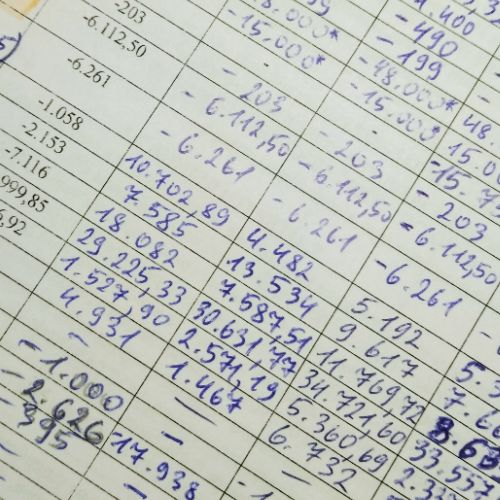 -203
-6.112,50
-6.261
-1.058
-2.153
-7.116
999,85
6,92
8.000*
-15.000*
-
-203
-6.112,50
-6.261
10.702,89
7.585
18.082
29.225,33
1.527,90
4.931
-
-1.000
-2.626
395
.400
-490
-199
-48.000*
-15.000
-
-203
-6.112,50
-6.261
4.482
13.534
7.587,51
30.631,77
2.571,19
1.467
-
17.938
-
48.
15.00
-15.7
-203
-6.112,50
-6.261
5.192
9.617
11.769,72
34.721,60
5.360,69
6.732
-
5.
7.6
8.68
33.557